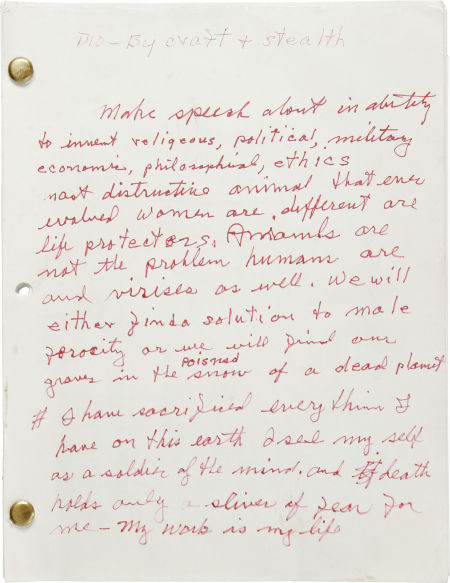 DIO - By craft + stealth
Make speech about in abitity
to invent religeous, political, military
economic, philosophical, ethics
mast distructive animal that ever
evolved women are different are
life protectors. Animals are
not the problem humans are
and virises as well. We will
either find a solution to male
ferocity or we will find our
graves in the poisned snow of a dead planet
# I have sacrificed everything I
have on this earth I see my self
as a soldier of the mind. and If death
holds only a sliver of fear for
me - My work is my life